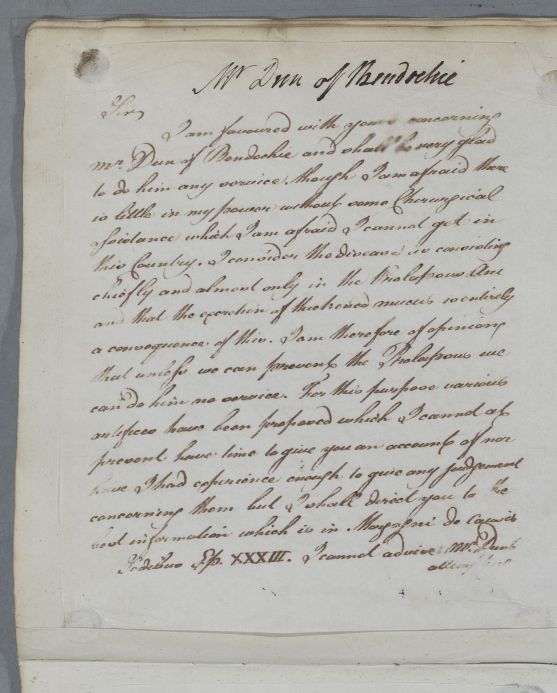 Mr Dun of Bendochie
Sir,
I am favoured with yours concerning
Mr. Dun of Bendochie and shall be very glad
to do him any service though I am afraid there
is little in my power without some Chirurgical
assistance which I am afraid I cannot get in
this Country. I consider the disease as consisting
chiefly and almost only in the Prolapsus Ani
and that the excretion of thickened mucus is entirely
a consequence of this. I am therefore of opinion
that unless we can prevent the Prolapsus we
can do him no service. For this purpose various
artifices have been proposed which I cannot at
present have time to give you an account of nor
have I had experience enough to give any judgement
concerning them but I shall direct you to the
best information which is in Morgagni de causis
Sedibus Ep. XXXIII. I cannot advise Mr. Dun's